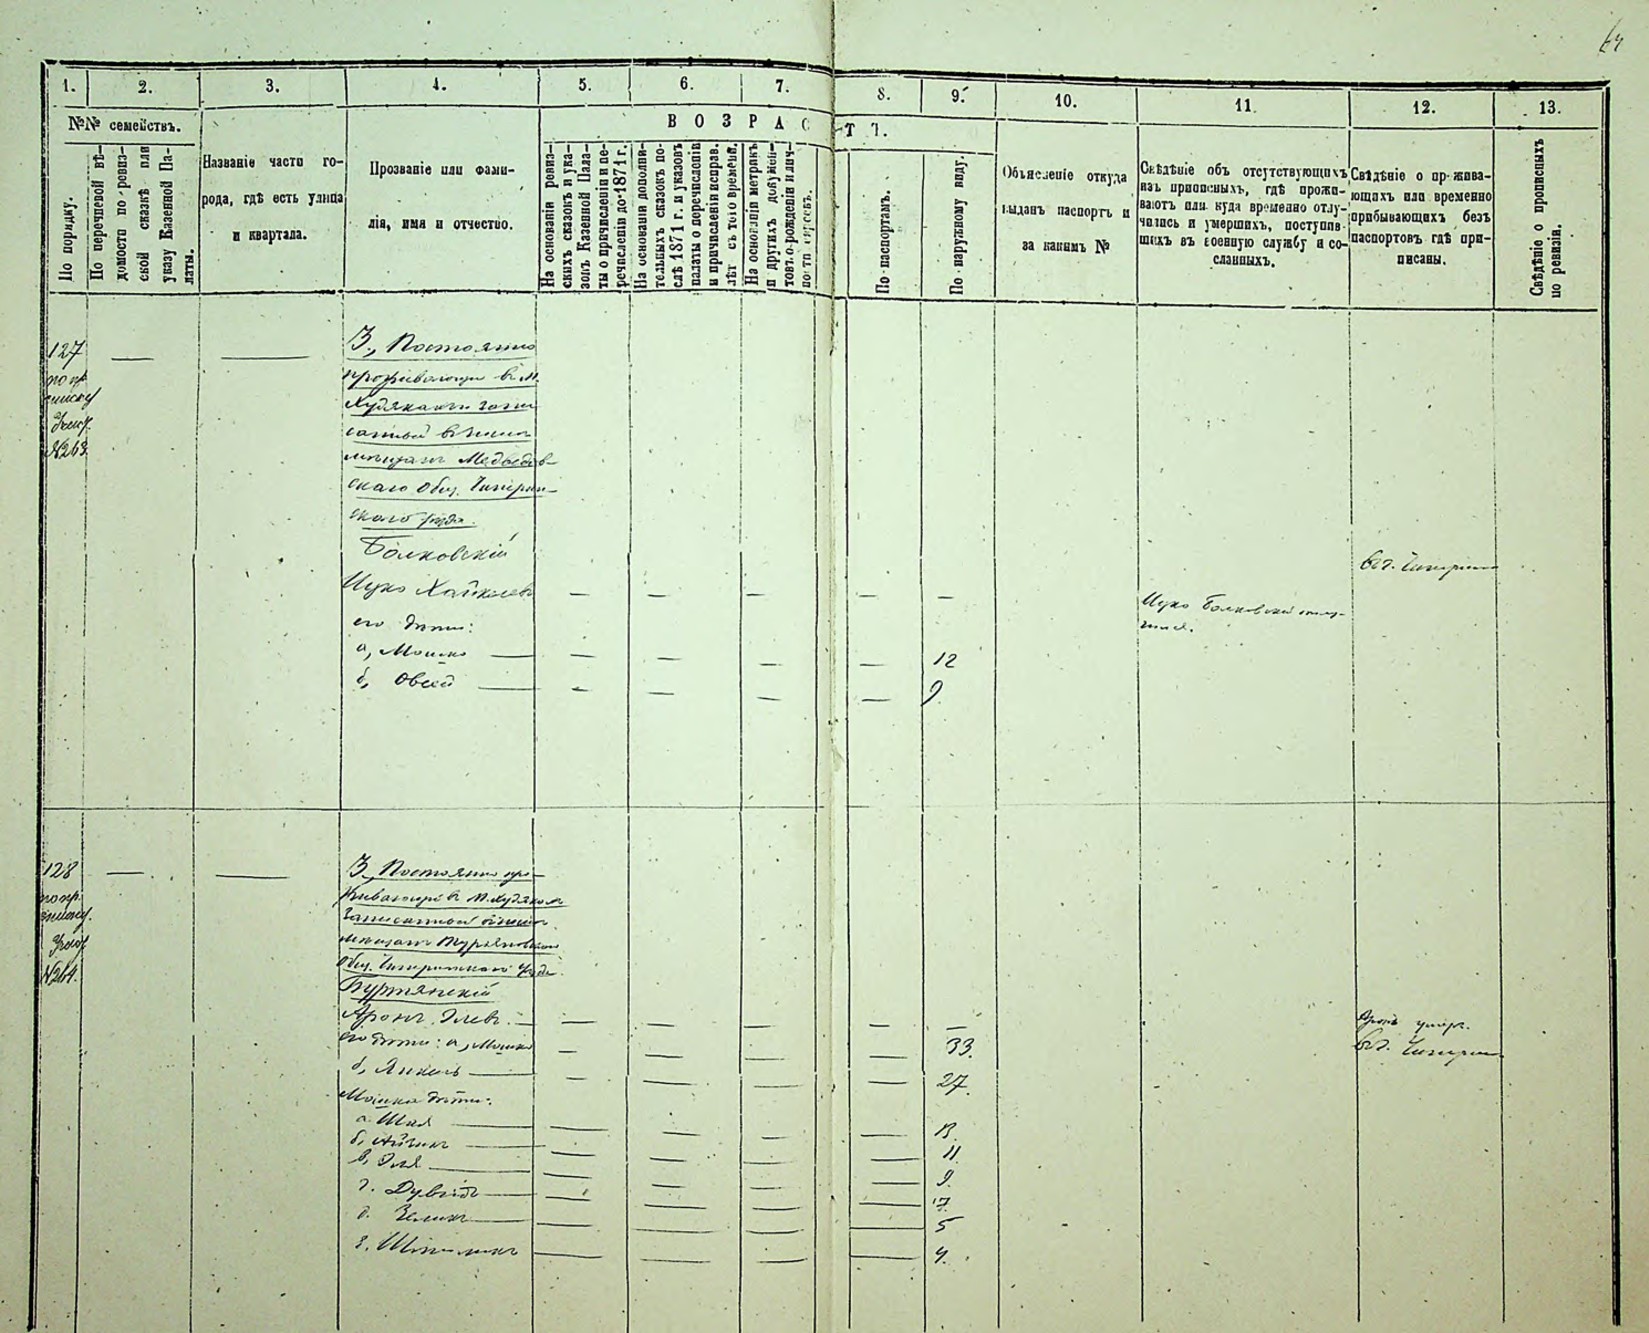 1.
2.
3.
4.
5.
6.
7.
8.
9.
10.
11.
12.
13.
№№ семействъ.
ВОЗРАСТЪ.
По порядку.
По перечневой вѣ-
домости по ревиз-
ской сказкѣ или
указу Казенной Па-
латы.
Названіе части го-
рода, гдѣ есть улица
и квартала.
Прозваніе или фами-
лія, имя и отчество.
На основаніи ревиз-
скихъ сказокъ и ука-
зовъ Казенной Пала-
ты о причисленіи и пе-
речисленіи до 1871 г.
На основаніи дополни-
тельныхъ сказокъ по-
слѣ 1871 г. и указовъ
палаты о перечисленіи
и причисленіи исправ.
лѣт съ того времени.
На основаніи метрикъ
и другихъ докумен-
товъ о рожденіи и лич-
ности евреевъ.
По паспортамъ.
По наружному виду.
Объясненіе откуда
выданъ паспортъ и
за какимъ №
Свѣдѣніе объ отсутствующихъ
изъ приписныхъ, гдѣ прожи-
ваютъ или куда временно отлу-
чились и умершихъ, поступив-
шихъ въ военную службу и со-
сланныхъ.
Свѣдѣніе о прожива-
ющихъ или временно
прибывающихъ безъ
паспортовъ гдѣ при-
писаны.
Свѣдѣніе о прописныхъ
по ревизіи.
127
по пр.
списку
№263.
3., Постоянно
проживающи въ м.
мѣщанъ Медвѣдов-
скаго Общ. Чигирин-
скаго уѣзда.
Болковскій
Ицко Хаймовъ
его дѣти:
а, Мошко 12
б, Овсей 9
въ г. Чигирин
Ицко Болковскій отлу-
чился.
128
по пр.
списку.
№264.
3., Постоянно про-
живающій въ м.
мѣщанъ
Общ. Чигиринскаго уѣзда
Буртянскій
Аронъ Элевъ
его дѣти: а, Мошко 33.
б, Янкель 27.
Мошка дѣти:
а. Шая 13.
б, Айзикъ 11.
в, Эля 9.
г. Дувидъ 7.
д. Зеликъ 5
4.
Аронъ умеръ.
въ г. Чигирин